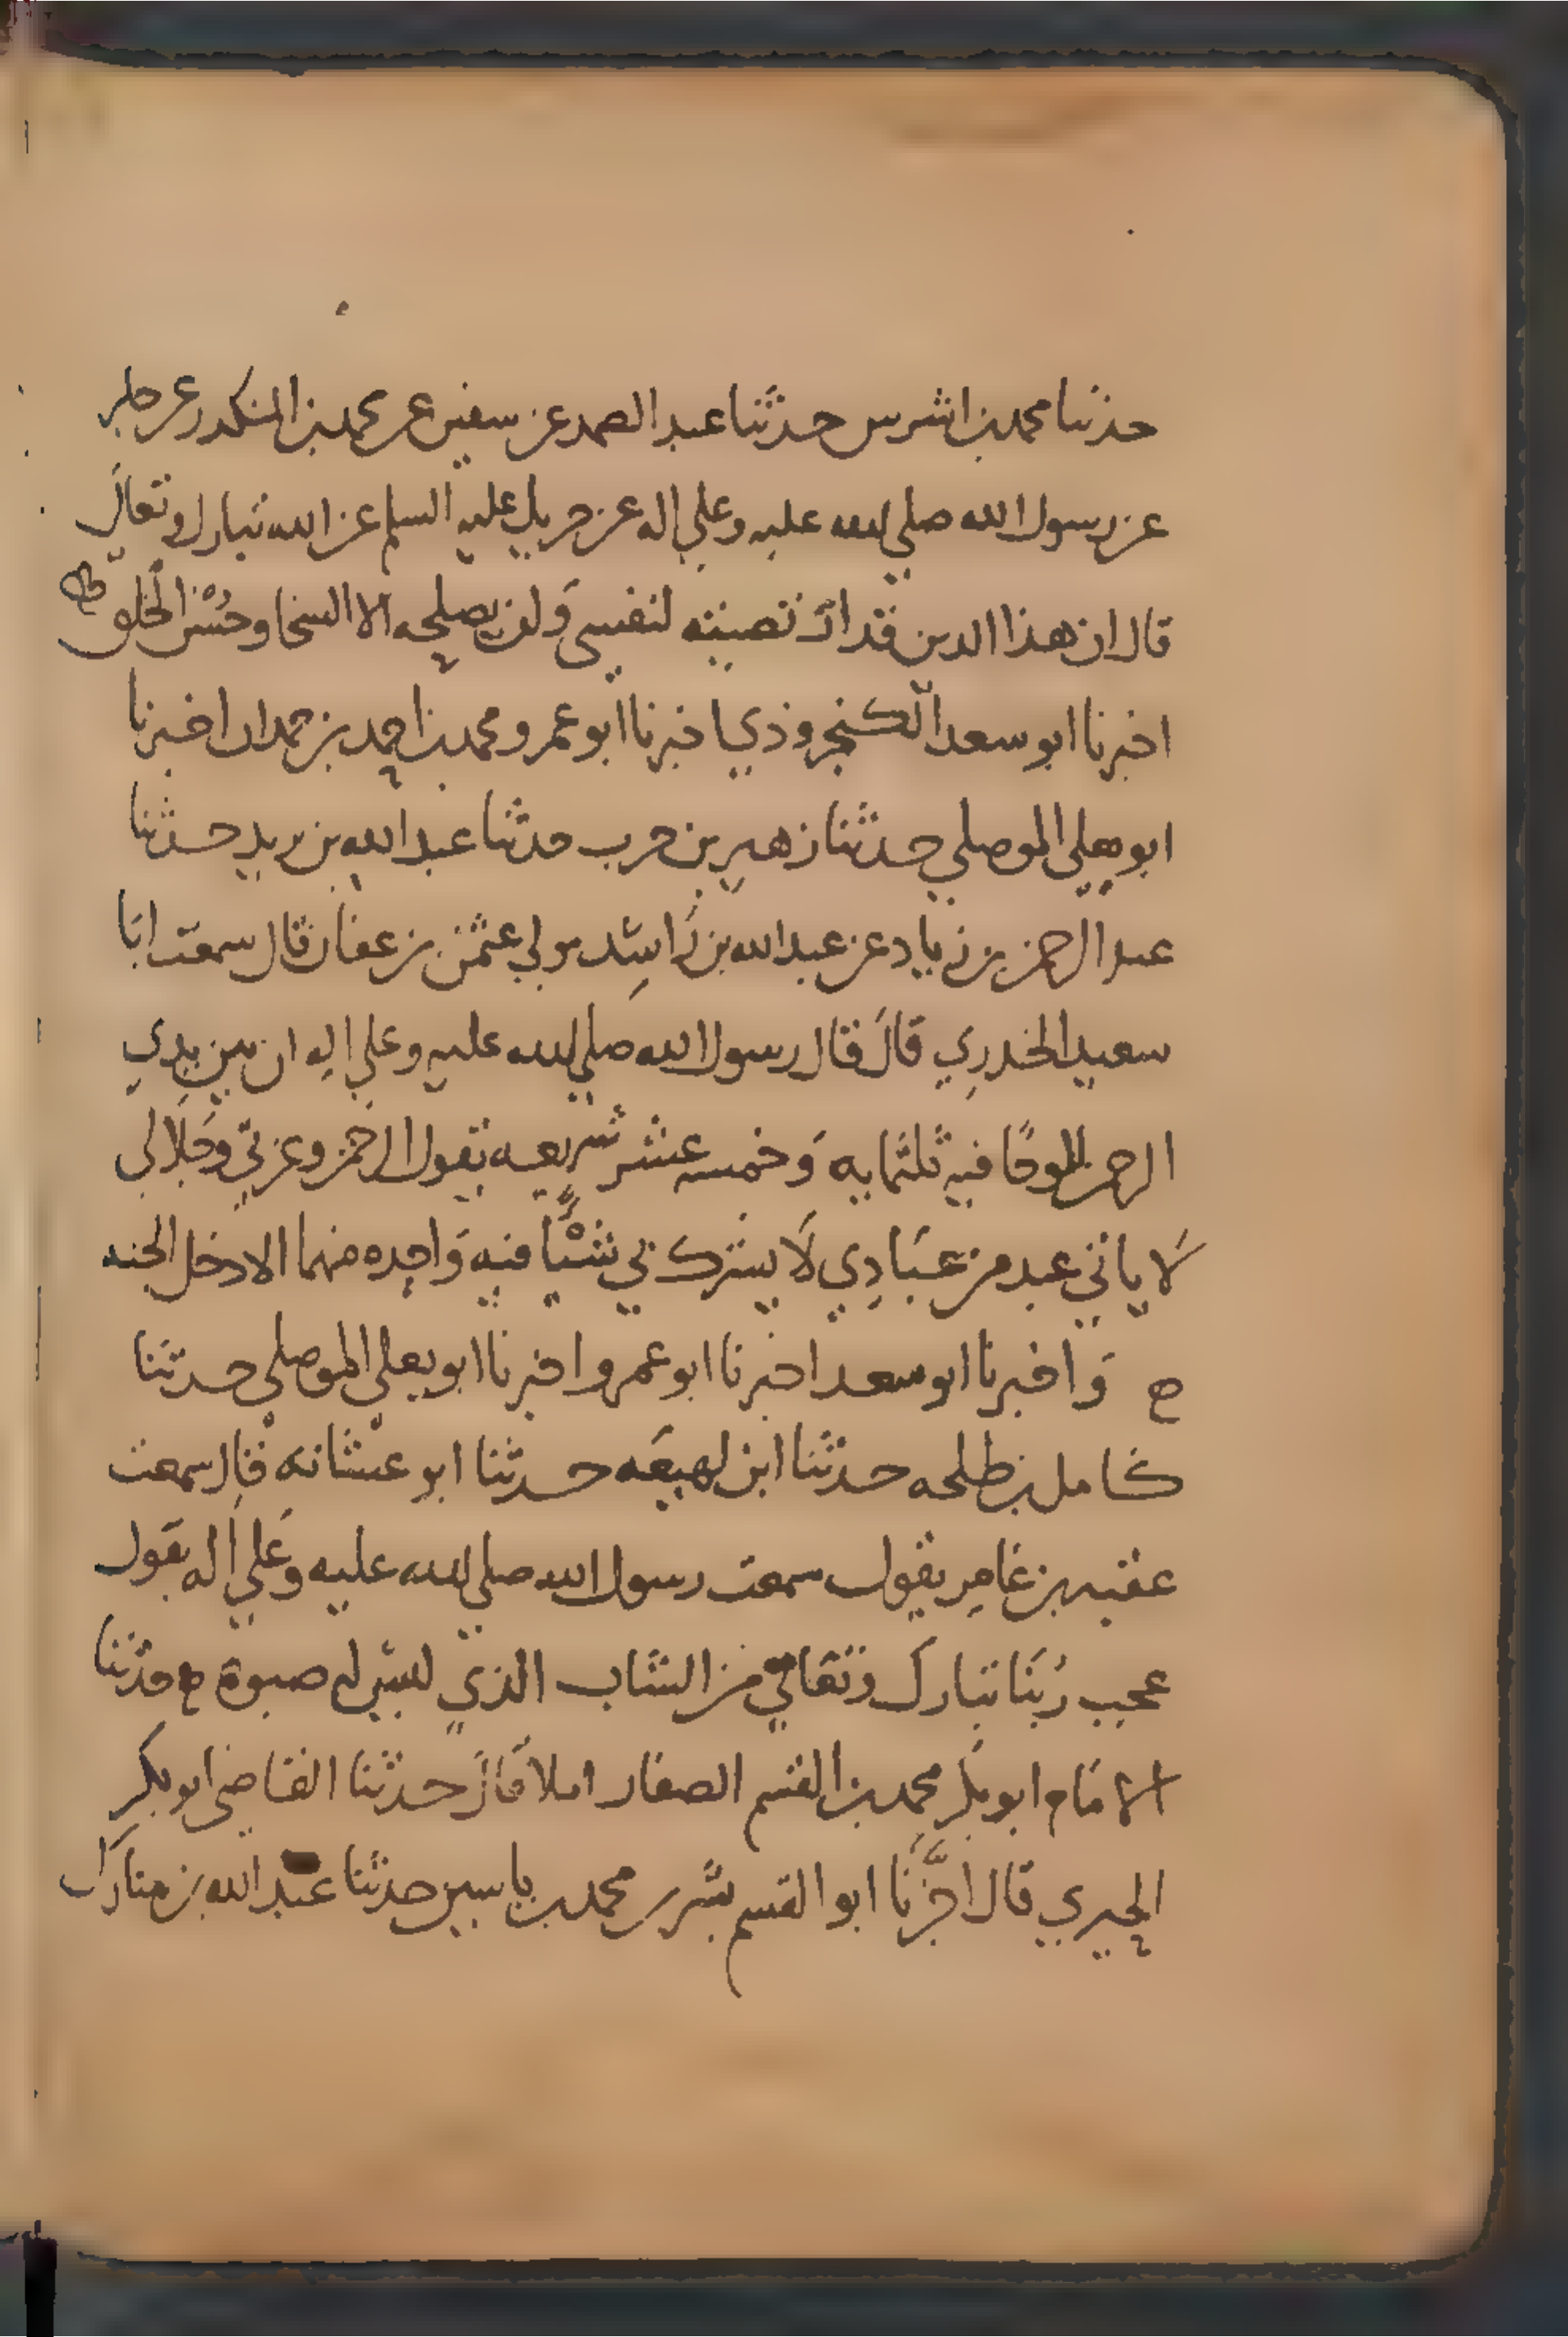 حدثنا محمد بن اشرس حدثنا عبد الصمد عن سفين عن محمد بن المنكدر عن جابر
عن رسول الله صلي الله عليه وعلي اله عن جبريل عليه السلم عن الله تبارك وتعالي
قال ان هذا الدين قد ارتضيته لنفسي وَلن يصلحه الا السخا وحُسْن الخلق
اخبرنا ابو سعد الكنجروذي اخبرنا ابو عمرو محمد بن احمد بن حمدان اخبرنا
ابو يعلي الموصلي حدثنا زهير بن حرب حدثنا عبد الله بن يزيد حدثنا
عبد الرحمن بن زياد عن عبد الله بن رَاشِد مولي عثمن بن عفان قال سمعت ابَا
سعيد الخدرِي قالَ قال رسول الله صلي الله عليه وعلي الهِ ان بين يدي
الرحمن للوحًا فيه ثلثمايه وَخمسه عشر شريعه يقول الرحمن وعزتي وجَلالي
لَا ياتي عبد من عبَادِي لَا يشرك بي شيْئًا فيه وَاحِده منها الا دخل الجنه
ح وَاخبرنا ابو سعد اخبرنا ابو عمرو اخبرنا ابو يعلي الموصلي حدثنَا
كامل بن طلحه حدثنَا ابن لهيعَه حدثنا ابو عشانه قال سمعت
عقبه بن عَامِر يقول سمعت رسول الله صلي الله عليه وَعَلي اله يقول
عجب رَبنَا تبارك وتعَالي من الشاب الذي ليس له صبوة ح حدثنا
الامَام ابو بكر محمد بن القسم الصفار املا قَالَ حدثنا القاضي ابو بكر
الحيري قال اخبرنَا ابو القسم بشر بن محمد بن ياسين حدثنا عبد الله بن مبارك